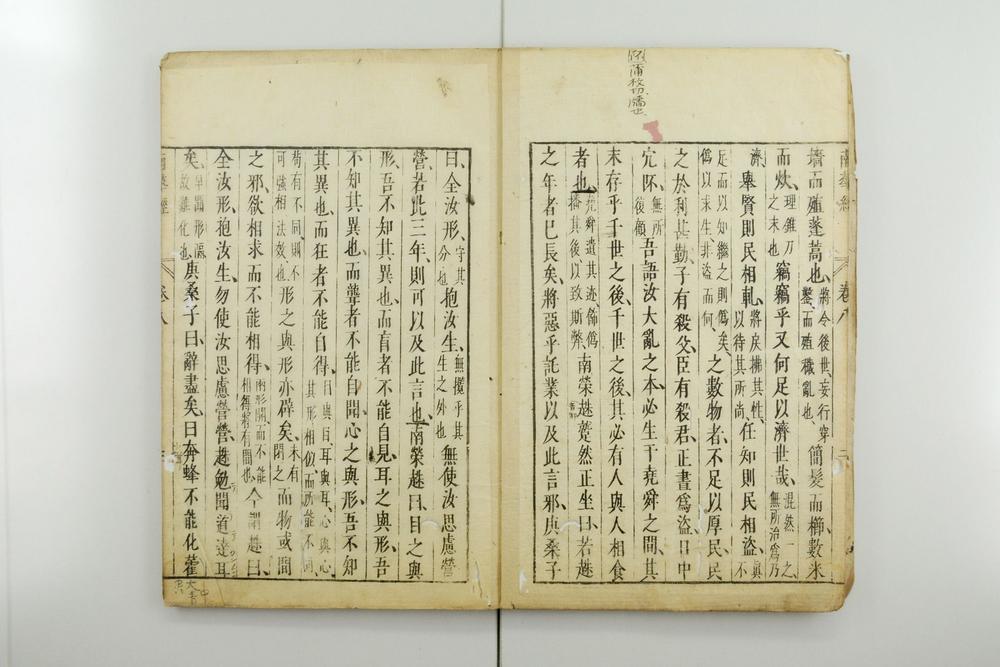 阫蒲枚切牆也
南華經 卷八 二
墻而殖蓬蒿也將令後世妄行穿鑿而殖穢亂也簡髮而櫛數米
而炊理錐刀之末也竊竊乎又何足以濟世哉混然一之無所治爲乃
濟舉賢則民相軋將戾拂其性以待其所尚任知則民相盜真不
足而以知繼之則僞矣僞以求生非盜而何之數物者不足以厚民民
之於利甚勤子有殺父臣有殺君正晝爲盜日中
穴阫無所復顧吾語汝大亂之本必生于堯舜之間其
末存乎千世之後千世之後其必有人與人相食
者也堯舜遺其迹飾僞播其後以致斯弊南榮趎蹵然正坐曰若趎
之年者已長矣將惡乎託業以及此言邪庚桑子
曰全汝形守其分也抱汝生無攬乎其生之外也無使汝思慮營
營若此三年則可以及此言也南榮趎曰目之與
形吾不知其異也而盲者不能自見耳之與形吾
不知其異也而聾者不能自聞心之與形吾不知
其異也而狂者不能自得目與目耳與耳心與心其形相似而所能不同
苟有不同則不可強相法效也形之與形亦辟矣未有閉之而物或間
之邪欲相求而不能相得兩形開而不能相得將有間也今謂趎曰
全汝形抱汝生勿使汝思慮營營趎勉聞道達耳
矣早聞形隔故難化也庚桑子曰辭盡矣曰奔蜂不能化藿
南華經 卷八